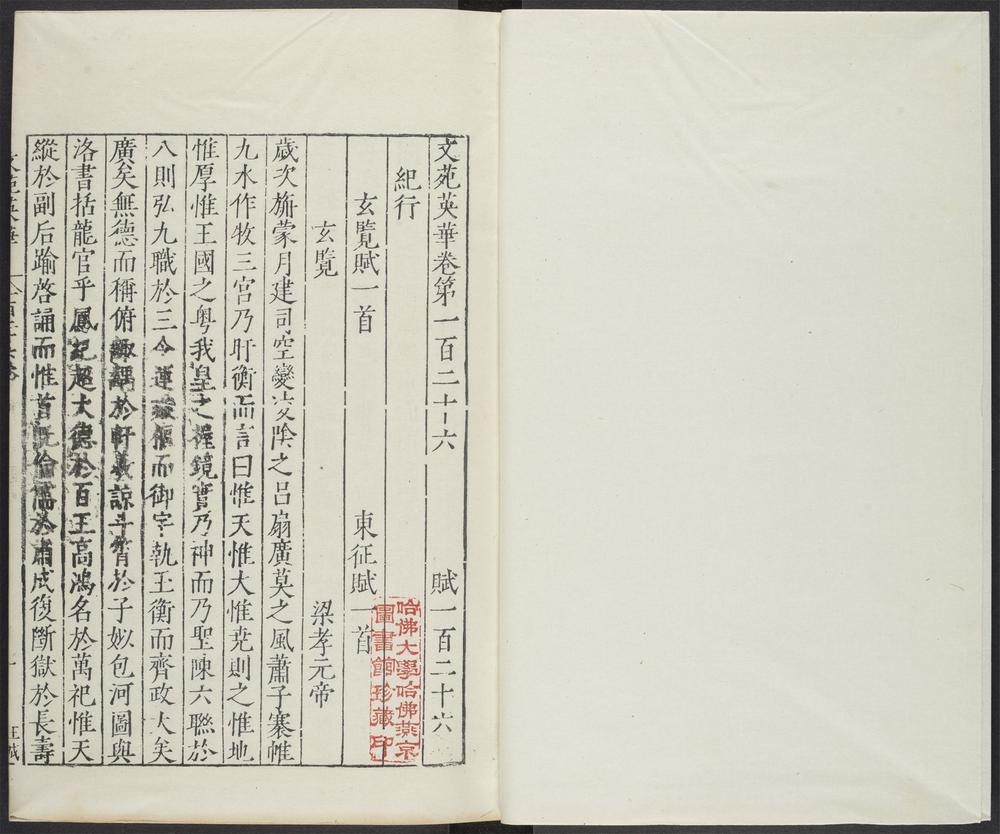 文苑英華卷第一百二十六 賦一百二十六
紀行
玄覽賦一首 東征賦一首
玄覽 梁孝元帝
歲次旃蒙月建司空變凌陰之呂扇廣莫之風蕭子褰帷
九水作牧三宮乃盱衡而言曰惟天惟大惟堯則之惟地
惟厚惟王國之粤我皇之握鏡實乃神而乃聖陳六聯於
八則弘九職於三今運璇樞而御宇執玉衡而齊政大矣
廣矣無德而稱俯諏諮於軒羲諒斗筲於子姒包河圖與
洛書括龍官乎鳳紀超大德於百王高鴻名於萬祀惟天
縱於副后踰啓誦而惟首既倫儒於肅成復斷獄於長壽
哈佛大學哈佛燕京
圖書館珍藏印